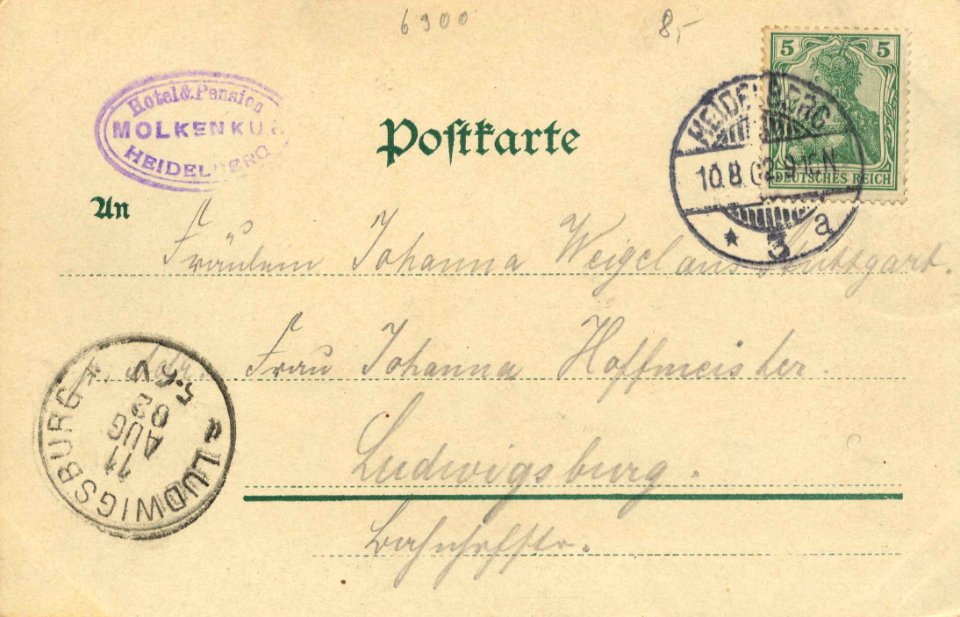 6900
8,-
Hotel & Pension
MOLKENKUR
HEIDELBERG
Postkarte
5 5
DEUTSCHES REICH
HEIDELBERG
10.8.02.9-10N
* 3 a
An
Fräulein Johanna Weigel aus Stuttgart.
Adr. Frau Johanna Hoffmeister.
Ludwigsburg.
Bahnhofstr.
LUDWIGSBURG
11
AUG
02
5-6V